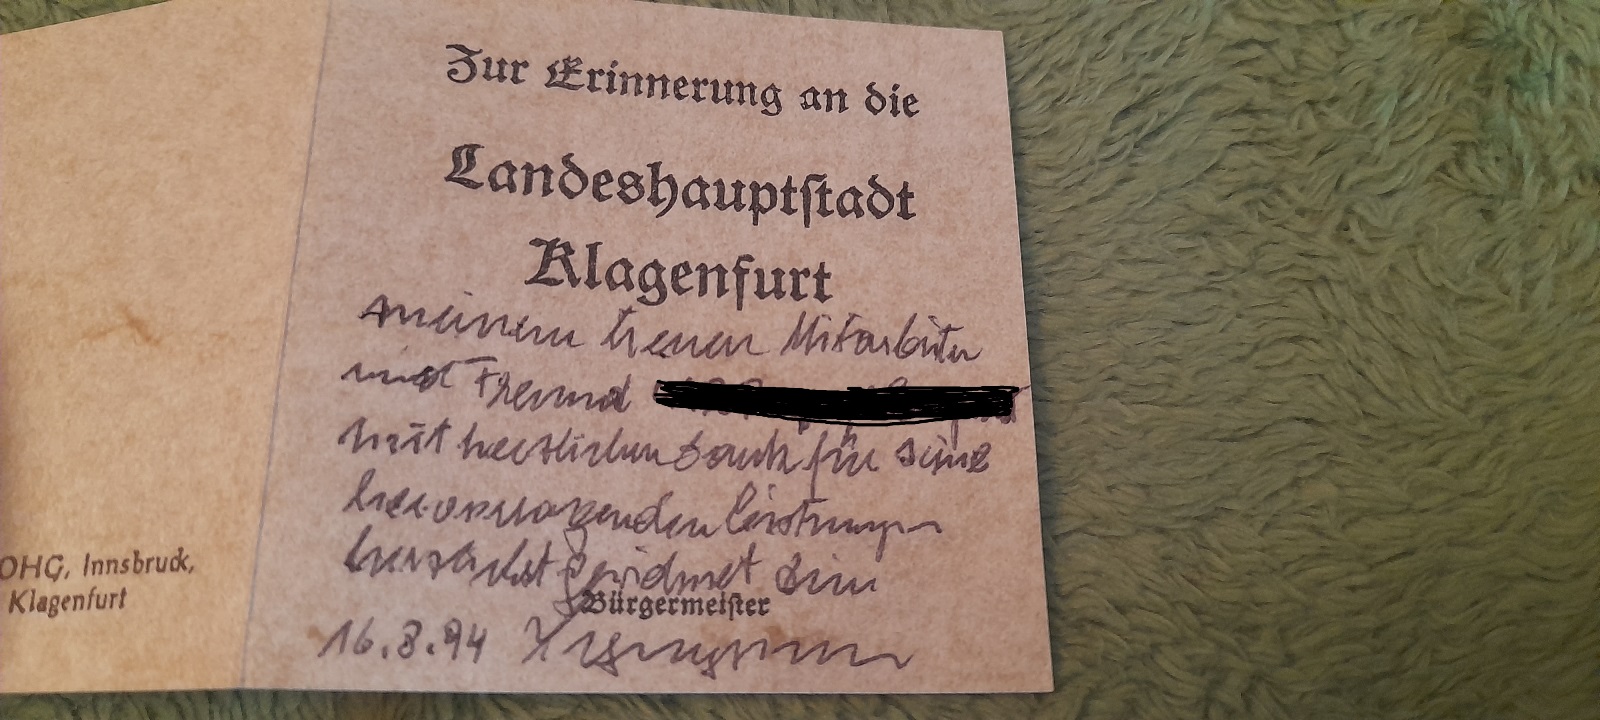 Zur Erinnerung an die
Landeshauptstadt
Klagenfurt
meinem treuen Mitarbeiter
und Freund
mit herzlichem Dank für seine
hervorragenden Leistungen
herzlichst gewidmet Dein
Bürgermeister
16.8.94
OHG, Innsbruck,
Klagenfurt